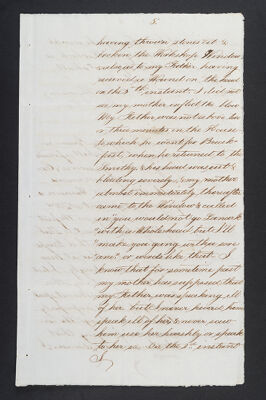 5.
having thrown stones at &
broken the Workshop Window
relative to my Father having
received a Wound on the head
on the 3rd instant. I did not
see my mother inflict the blow
My Father was not above two
or three minutes in the House
to which he went for Break-
fast, when he returned to the
Smithy, & his head was cut &
bleeding severely, & my mother
almost immediately thereafter
came to the Window & called
in "you would not go to work
"with a whole head but I'll
"make you going without
"ane" or words like that. I
know that for sometime past
my mother has supposed that
my Father was speaking ill
of her but I never heard him
speak ill of her & never saw
him use her harshly or speak
to her so. On the 3rd instant
I